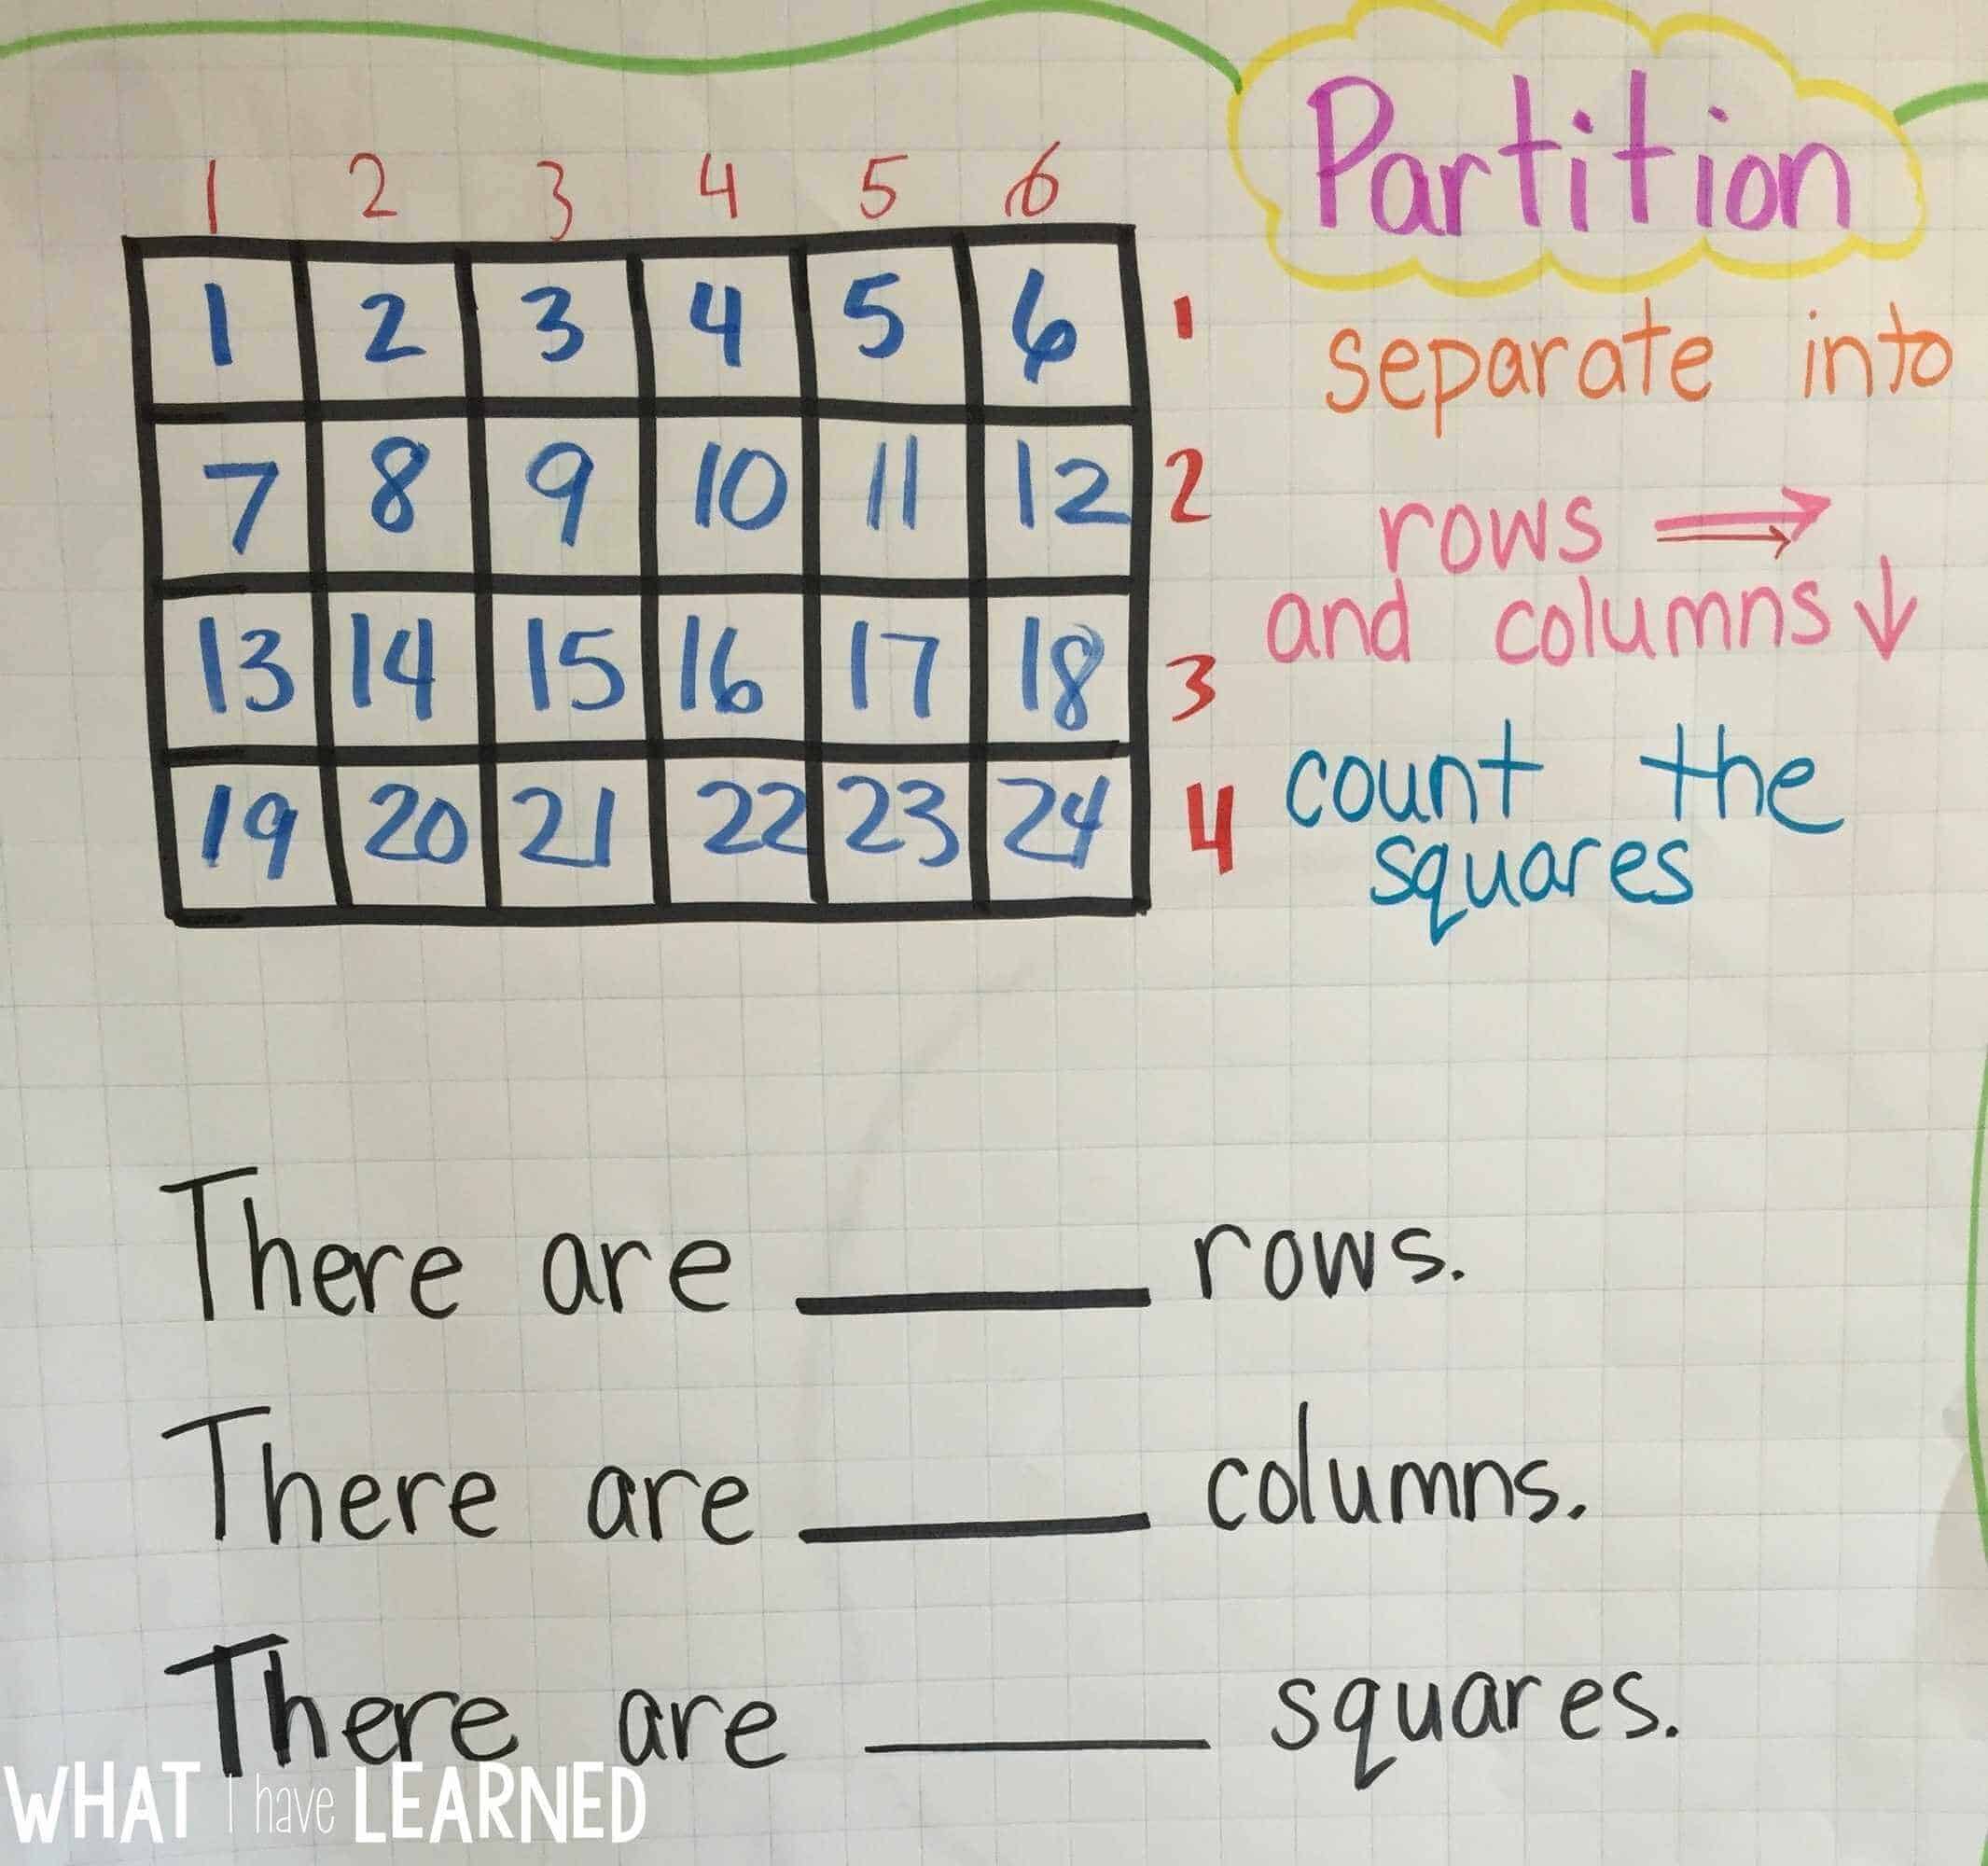 Partition
1 2 3 4 5 6
1 2 3 4 5 6 1
7 8 9 10 11 12 2
13 14 15 16 17 18 3
19 20 21 22 23 24 4
separate into
rows
and columns
count the
squares
There are ____ rows.
There are ____ columns.
There are ____ squares.
WHAT I have LEARNED